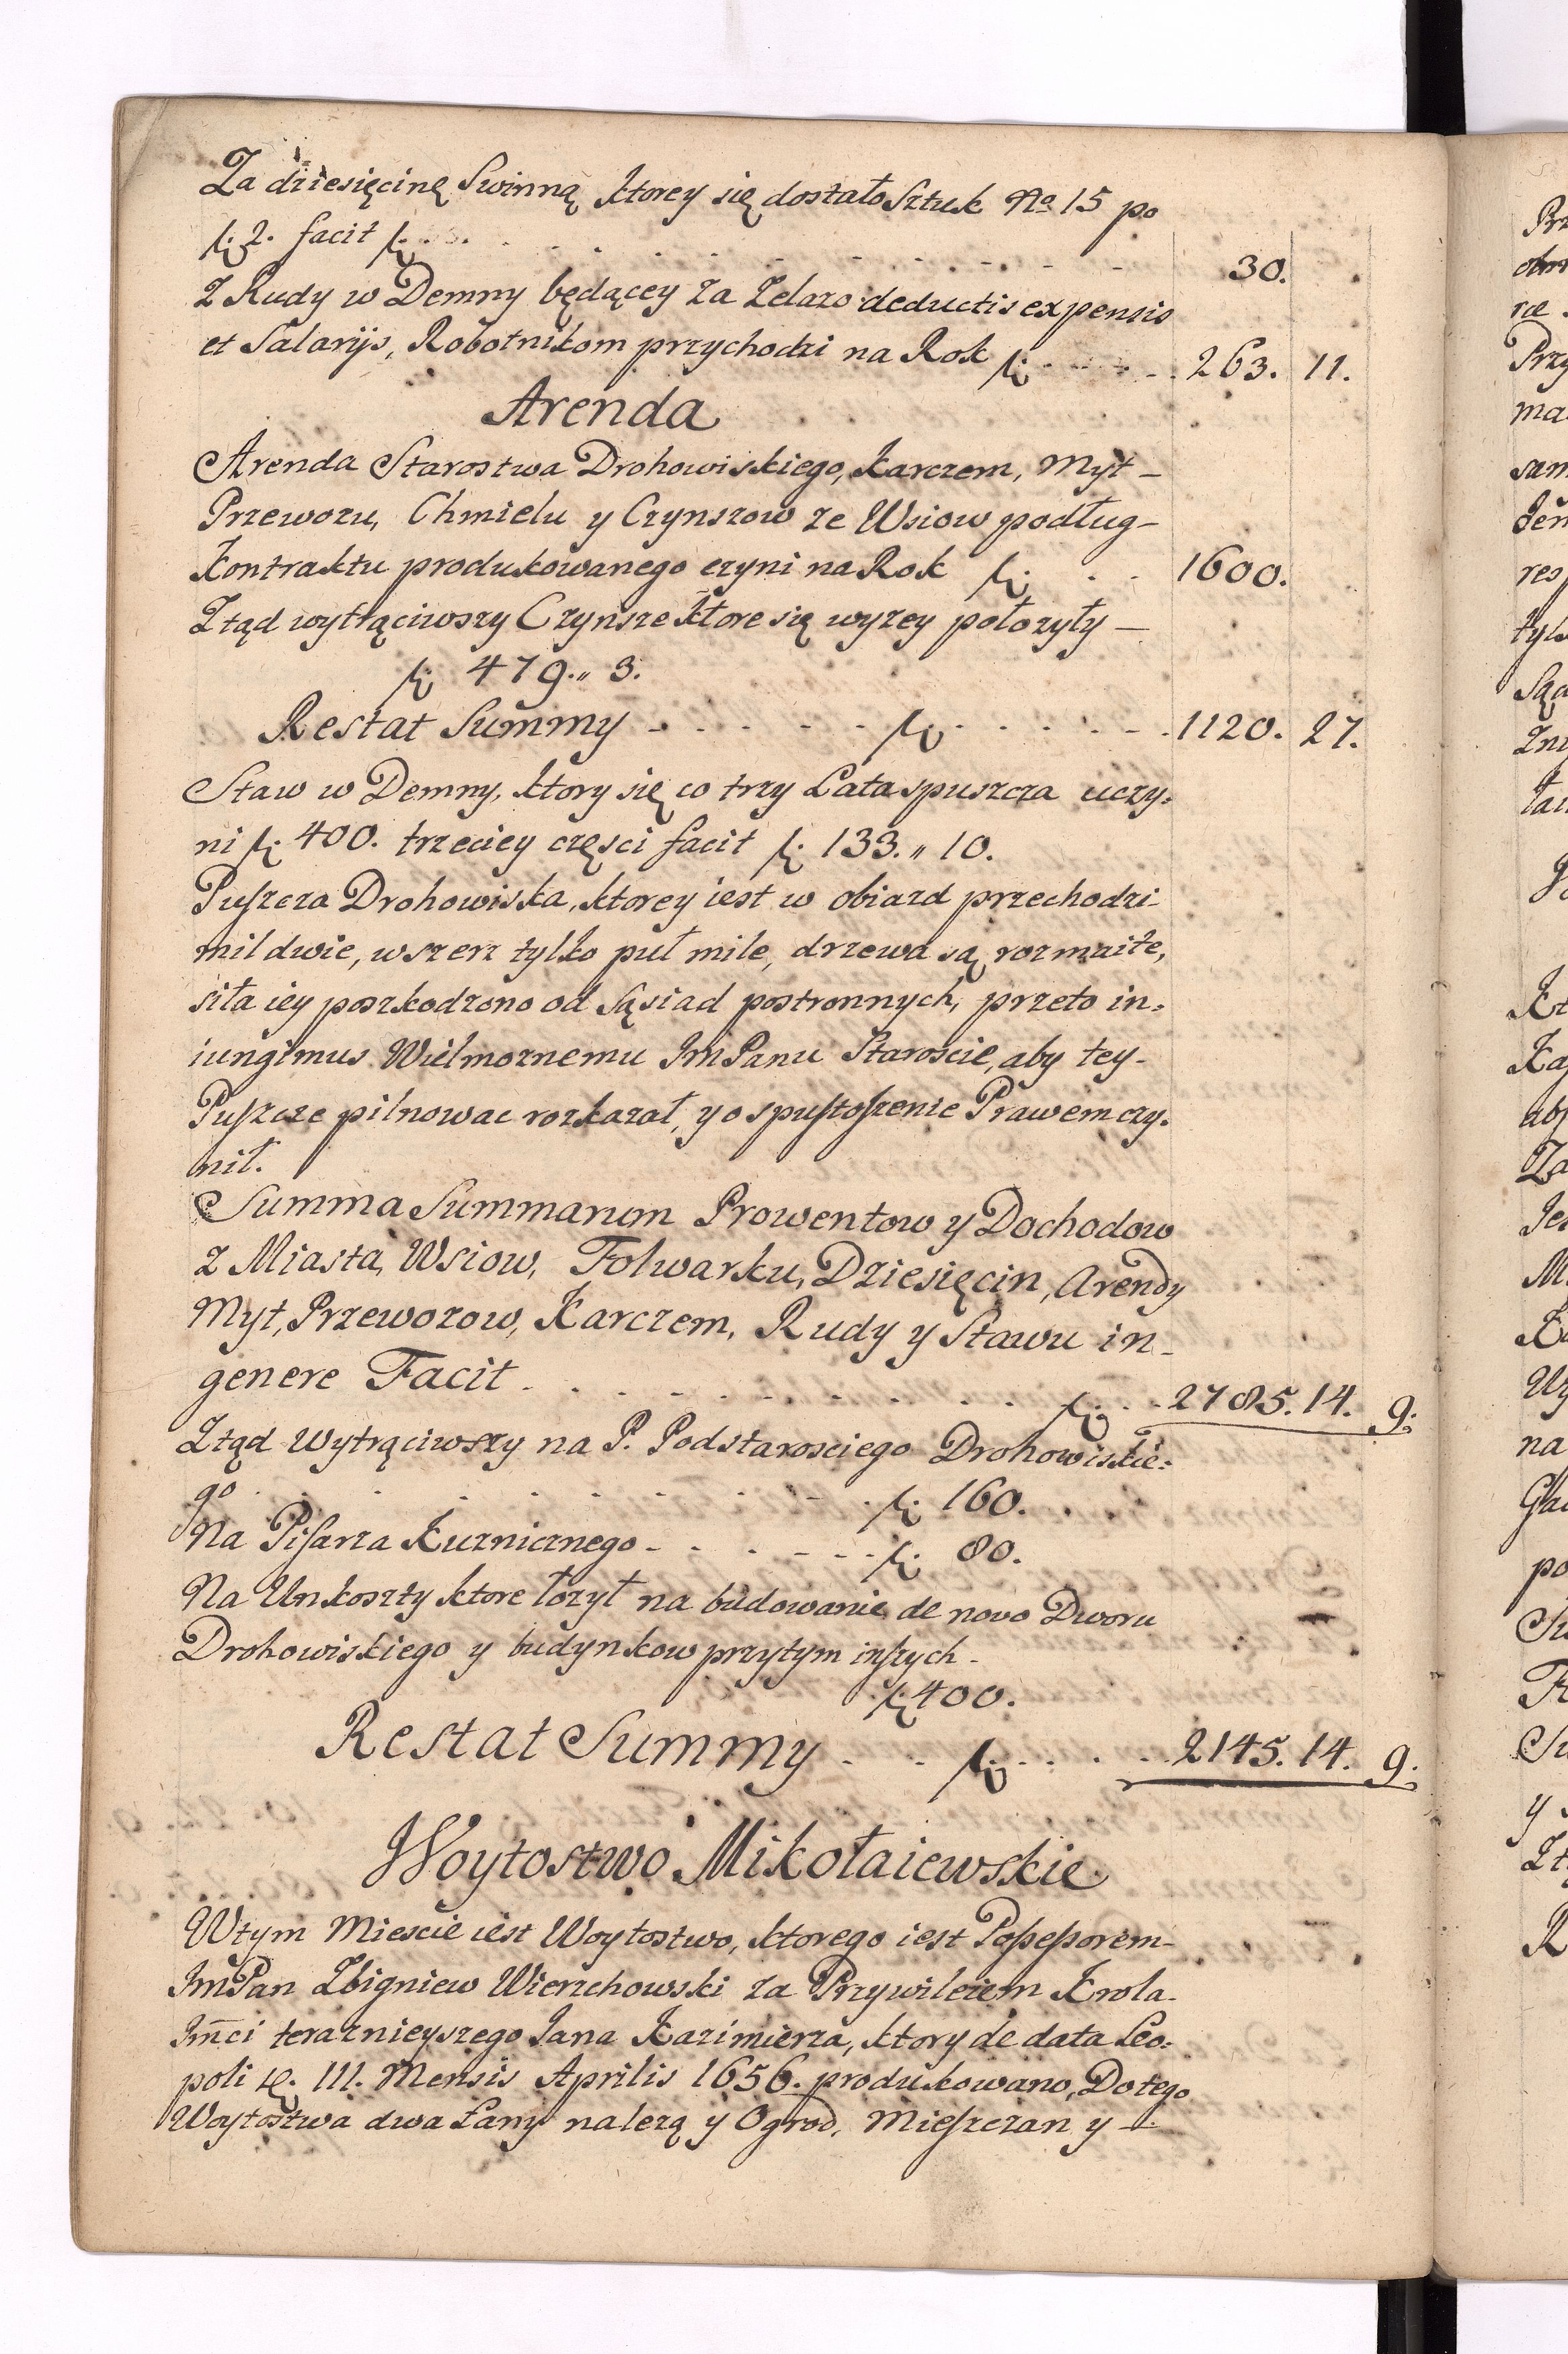 Za dziesięcinę Swinną ktorey się dostało Sztuk No 15 po
fl. 2. facit fl. . . . 30.
Z Rudy w Demny będącey za Zelazo deductis expensis
et Salarijs, Robotnikom przychodzi na Rok fl. . . . 263. 11.
Arenda
Arenda Starostwa Drohowiskiego, Karczem, Myt –
Przewozu, Chmielu y Czynszow ze Wsiow podług –
Kontraktu produkowanego czyni na Rok fl. . . 1600.
Ztąd wytrąciwszy Czynsze ktore się wyzey położyły –
fl. 479.„ 3.
Restat Summy . . . . . fl. . . . . . 1120. 27.
Staw w Demny, ktory się co trzy Lata spuszcza uczy:
ni fl. 400. trzeciey częsci facit fl. 133.„ 10.
Puszcza Drohowiska, ktorey iest w obiazd przechodzi-
mil dwie, wszerz tylko puł mile, drzewa są rozmaite,
siła iey poszkodzono od Sąsiad postronnych, przeto in:
iungimus Wielmoznemu ImPanu Staroscie, aby tey-
Puszcze pilnowac rozkazał, y o spustoszenie Prawem czy:
nił.
Summa Summarum Prowentow y Dochodow
z Miasta, Wsiow, Folwarku, Dziesięcin, Arendy
Myt, Przewozow, Karczem, Rudy y Stawu in-
genere Facit . . . . . . . . . . fl. . . 2785. 14. 9:
Ztąd Wytrąciwszy na P. Podstarosciego Drohowiskie:
go . . . . . . . . . . fl. 160.
Na Pisarza Kuznicznego - . . . - - - fl. 80.
Na Unkoszty ktore łozył na budowanie de novo Dworu
Drohowiskiego y budynkow przytym inszych -
fl. 400.
Restat Summy . . . fl. . . . . 2145. 14. 9.
Woytostwo Mikołaiewskie
W tym Miescie iest Woytostwo, ktorego iest Possessorem-
ImPan Zbigniew Wierzchowski za Przywileiem Krola-
Jmci teraznieyszego Jana Kazimierza, ktory de data Leo:
poli d. III. Mensis Aprilis 1656. produkowano, Do tego
Woytostwa dwa Łany nalezą y Ogrod, Mieszczan y –